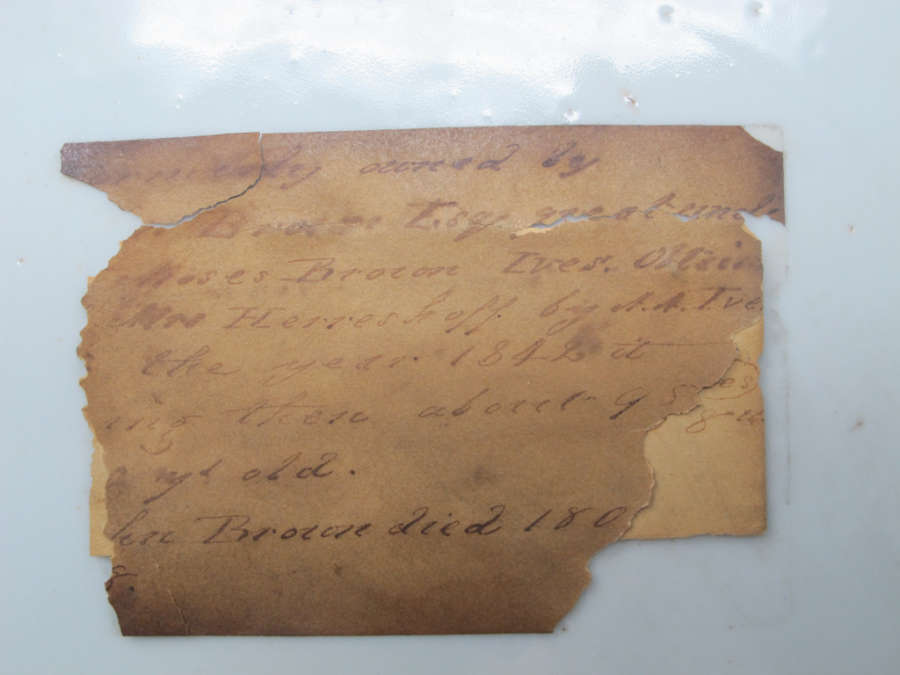 owned by
Brown Esq. great uncl
Moses Brown Ives. Obtain
Mrs Herreshoff. by Ives
the year 1842 it
ing then about 9
old.
hn Brown died 180